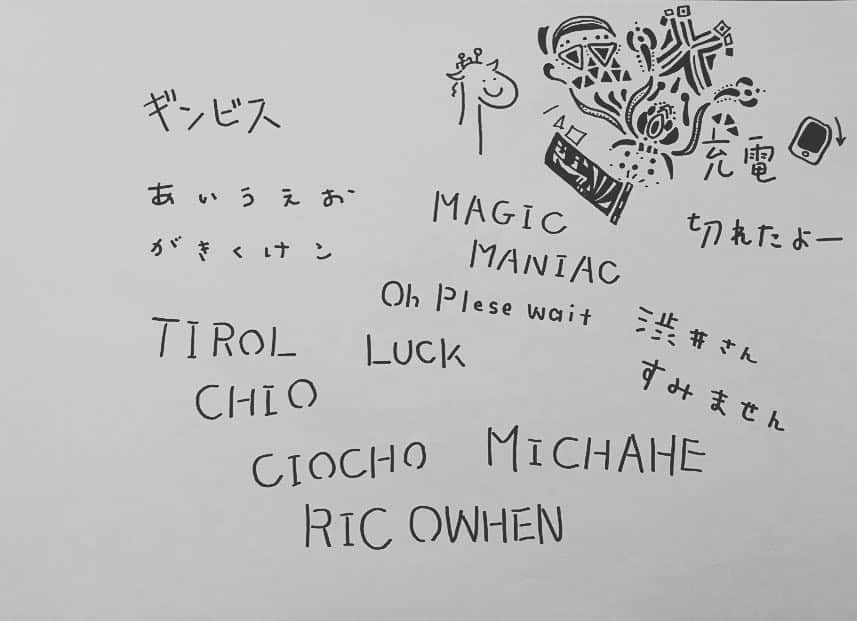 ギンビス
あいうえお
がきくけン
充電
切れたよー
MAGIC
MANIAC
Oh Plese wait
渋井さん
すみません
TIROL
CHIO
LUCK
CIOCHO
MICHAHE
RIC OWHEN